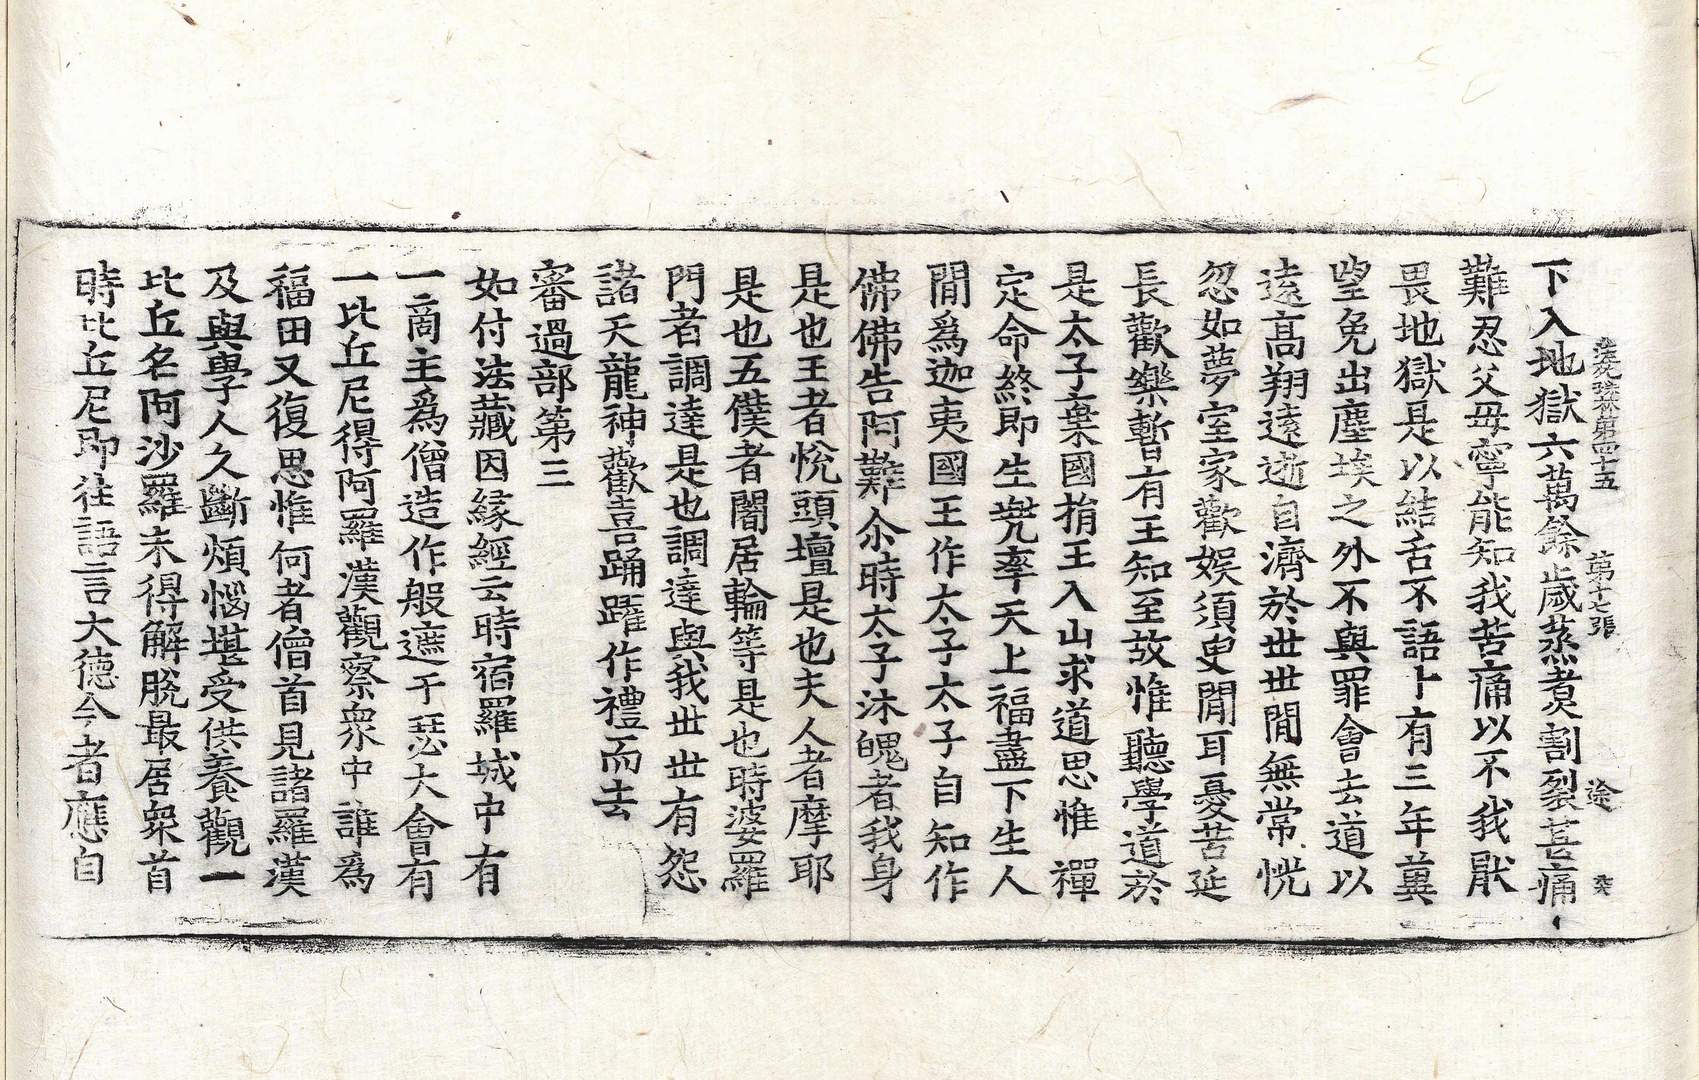 法苑珠林第四十五 第十七張 途
下入地獄六萬餘歲蒸煮割裂甚痛
難忍父母寧能知我苦痛以不我厭
畏地獄是以結舌不語十有三年冀
望免出塵埃之外不與罪會去道以
遠高翔遠逝自濟於世世間無常恍
忽如夢室家歡娛須臾間耳憂苦延
長歡樂暫有王知至故惟聽學道於
是太子棄國捐王入山求道思惟禪
定命終即生兜率天上福盡下生人
間爲迦夷國王作太子太子自知作
佛佛告阿難尒時太子沐魄者我身
是也王者悅頭壇是也夫人者摩耶
是也五僕者闍居輪等是也時婆羅
門者調達是也調達與我世世有怨
諸天龍神歡喜踊躍作禮而去
審過部第三
如付法藏因緣經云時宿羅城中有
一商主爲僧造作般遮于瑟大會有
一比丘尼得阿羅漢觀察衆中誰爲
福田又復思惟何者僧首見諸羅漢
及與學人久斷煩惱堪受供養觀一
比丘名阿沙羅未得解脫最居衆首
時比丘尼即往語言大德今者應自